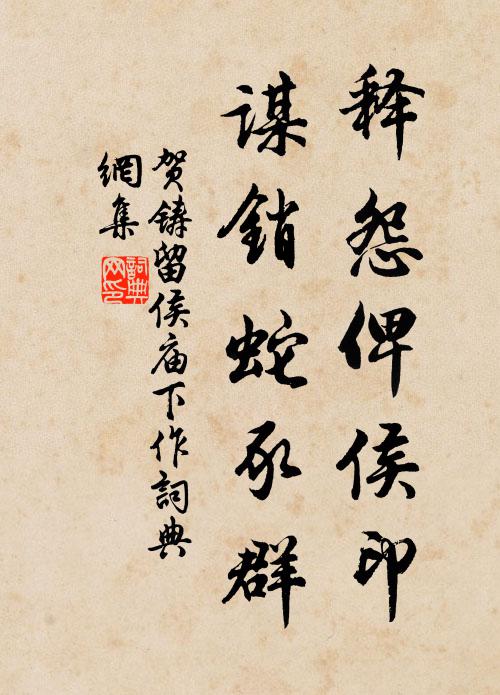 释怨俾侯印
謀銷蛇豕群
贺铸留侯庙下作詞典
網集
詞典网印